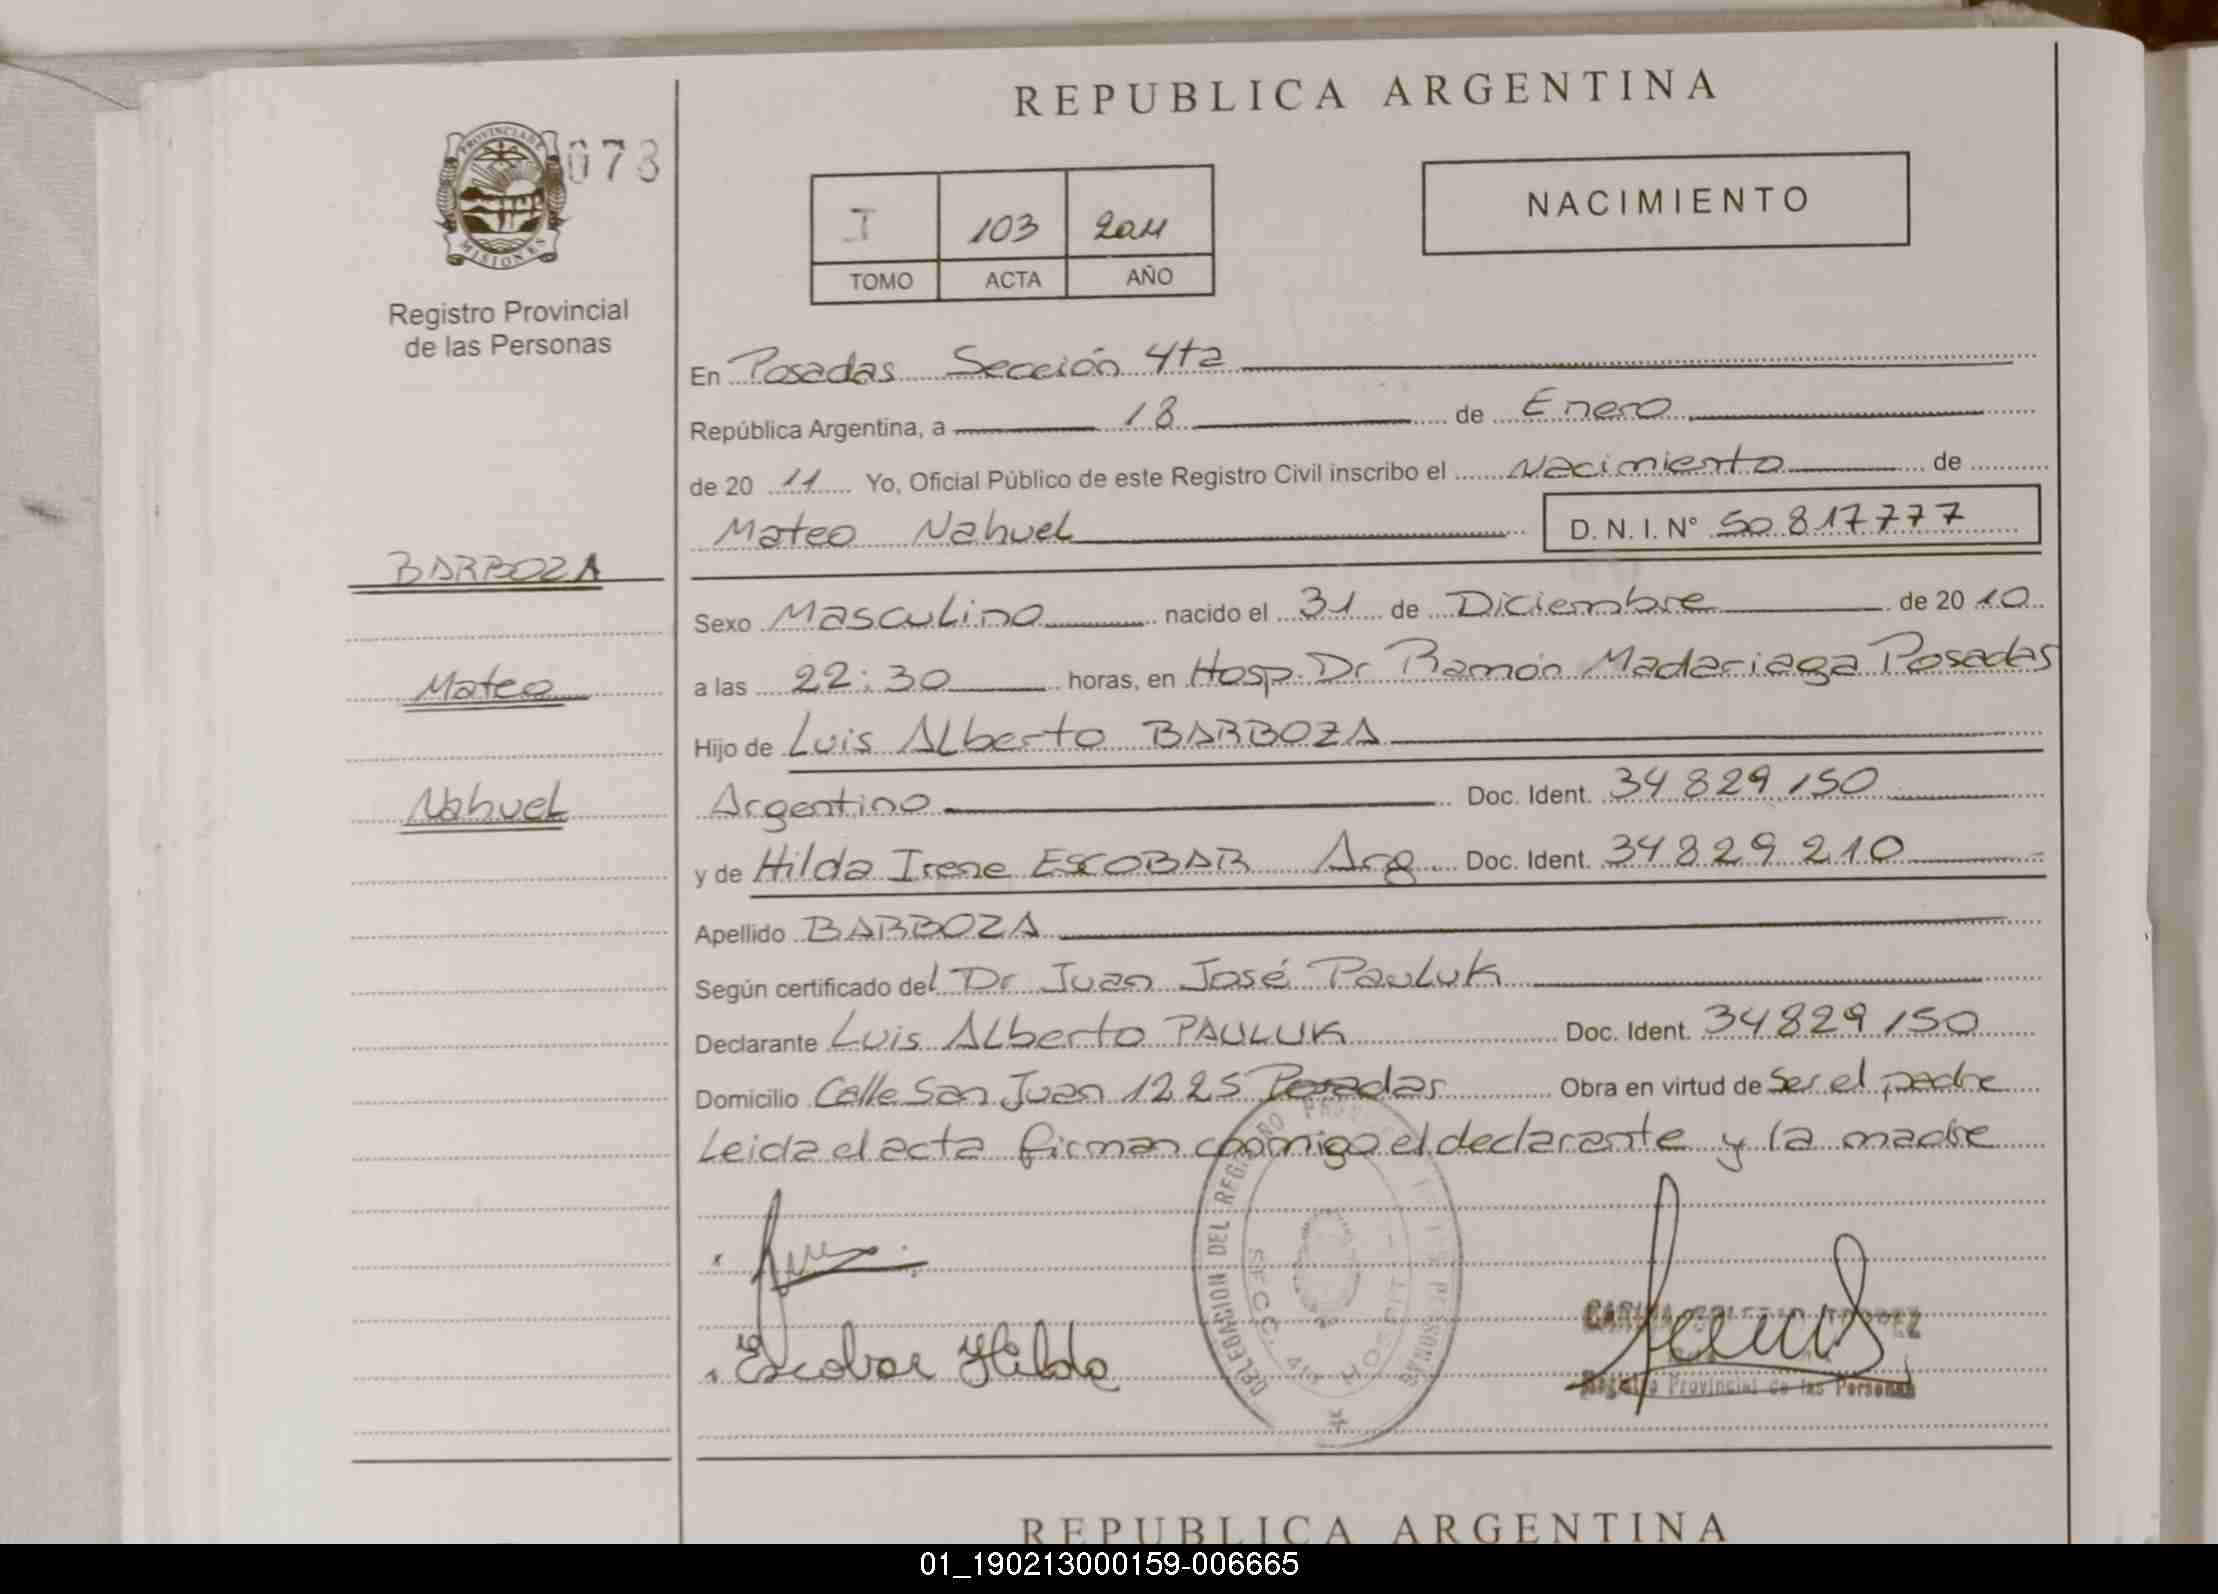 REPUBLICA ARGENTINA
PROVINCIA DE
MISIONES
073
Registro Provincial
de las Personas
I 103 2011
TOMO ACTA AÑO
NACIMIENTO
En Posadas Sección 4ta
República Argentina, a 18 de Enero
de 20 11 Yo, Oficial Público de este Registro Civil inscribo el Nacimiento de
Mateo Nahuel D. N. I. N° 50.817777
BARBOZA
Mateo
Nahuel
Sexo Masculino nacido el 31 de Diciembre de 20 10
a las 22:30 horas, en Hosp. Dr Ramón Madariaga Posadas
Hijo de Luis Alberto BARBOZA
Argentino Doc. Ident. 34 829 150
y de Hilda Irene ESCOBAR Arg Doc. Ident. 34 829 210
Apellido BARBOZA
Según certificado del Dr Juan José Pauluk
Declarante Luis Alberto PAULUK Doc. Ident. 34829 150
Domicilio Calle San Juan 1225 Posadas Obra en virtud de Ser el padre
Leida el acta firman conmigo el declarante y la madre
DELEGACION DEL REGISTRO PERSONAS
SECC. 4ta HOSPIT
Escobar Hilda
Registro Provincial de las Personas
REPUBLICA ARGENTINA
01_190213000159-006665